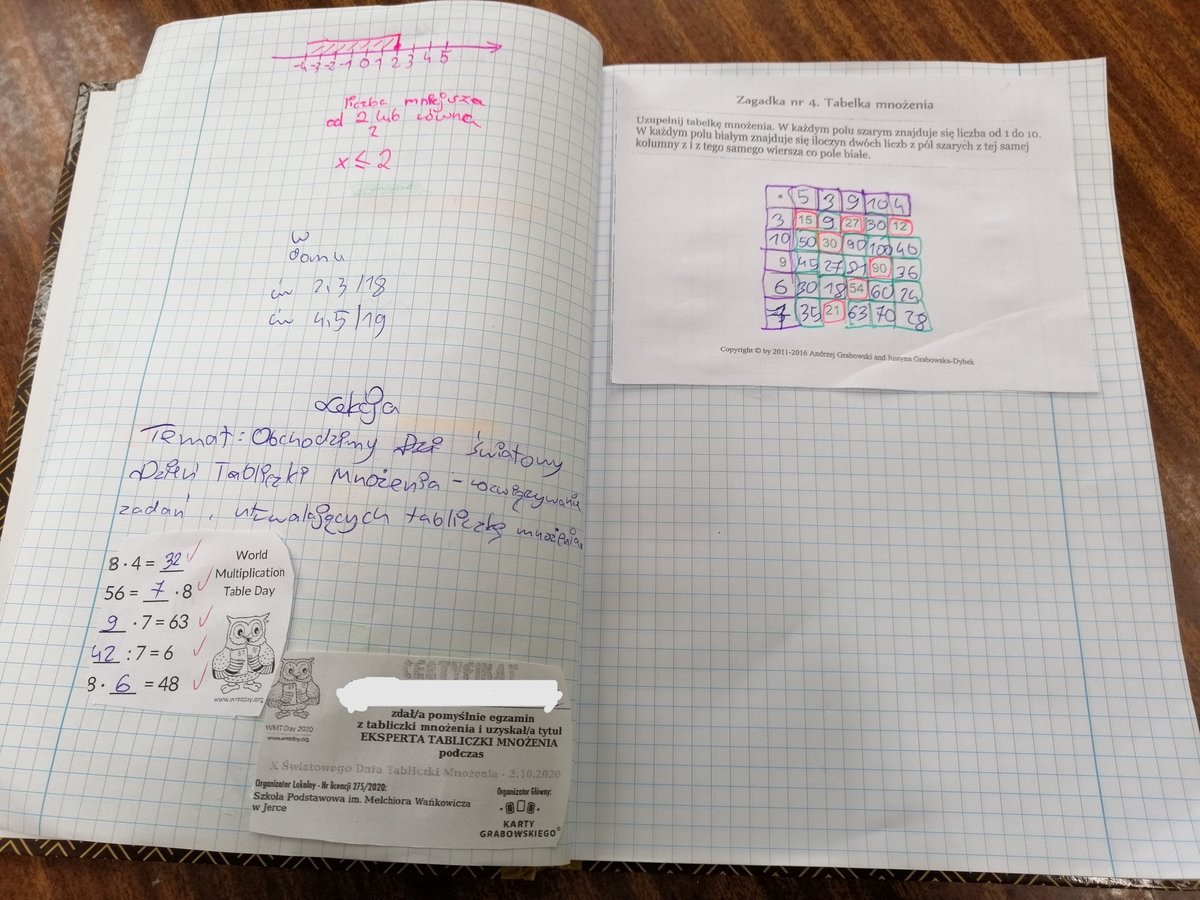 -4 -3 -2 -1 0 1 2 3 4 5
liczba mniejsza
od 2 lub równa
2
x ≤ 2
w
domu
ćw 2,3/18
ćw 4,5/19
Lekcja
Temat: Obchodzimy światowy
Dzień Tabliczki Mnożenia – rozwiązywanie
zadań, utrwalających tabliczkę mnożenia.
8 · 4 = 32
56 = 7 · 8
9 · 7 = 63
42 : 7 = 6
8 · 6 = 48
World
Multiplication
Table Day
www.wmtday.org
WMT Day 2020
www.wmtday.org
CERTYFIKAT
zdał/a pomyślnie egzamin
z tabliczki mnożenia i uzyskał/a tytuł
EKSPERTA TABLICZKI MNOŻENIA
podczas
X Światowego Dnia Tabliczki Mnożenia - 2.10.2020
Organizator Lokalny - Nr licencji 275/2020:
Szkoła Podstawowa im. Melchiora Wańkowicza
w Jerce
Organizator Główny:
KARTY
GRABOWSKIEGO
Zagadka nr 4. Tabelka mnożenia
Uzupełnij tabelkę mnożenia. W każdym polu szarym znajduje się liczba od 1 do 10.
W każdym polu białym znajduje się iloczyn dwóch liczb z pól szarych z tej samej
kolumny z i z tego samego wiersza co pole białe.
· 5 3 9 10 4
3 15 9 27 30 12
10 50 30 90 100 40
9 45 27 81 90 36
6 30 18 54 60 24
7 35 21 63 70 28
Copyright © by 2011-2016 Andrzej Grabowski and Justyna Grabowska-Dybek